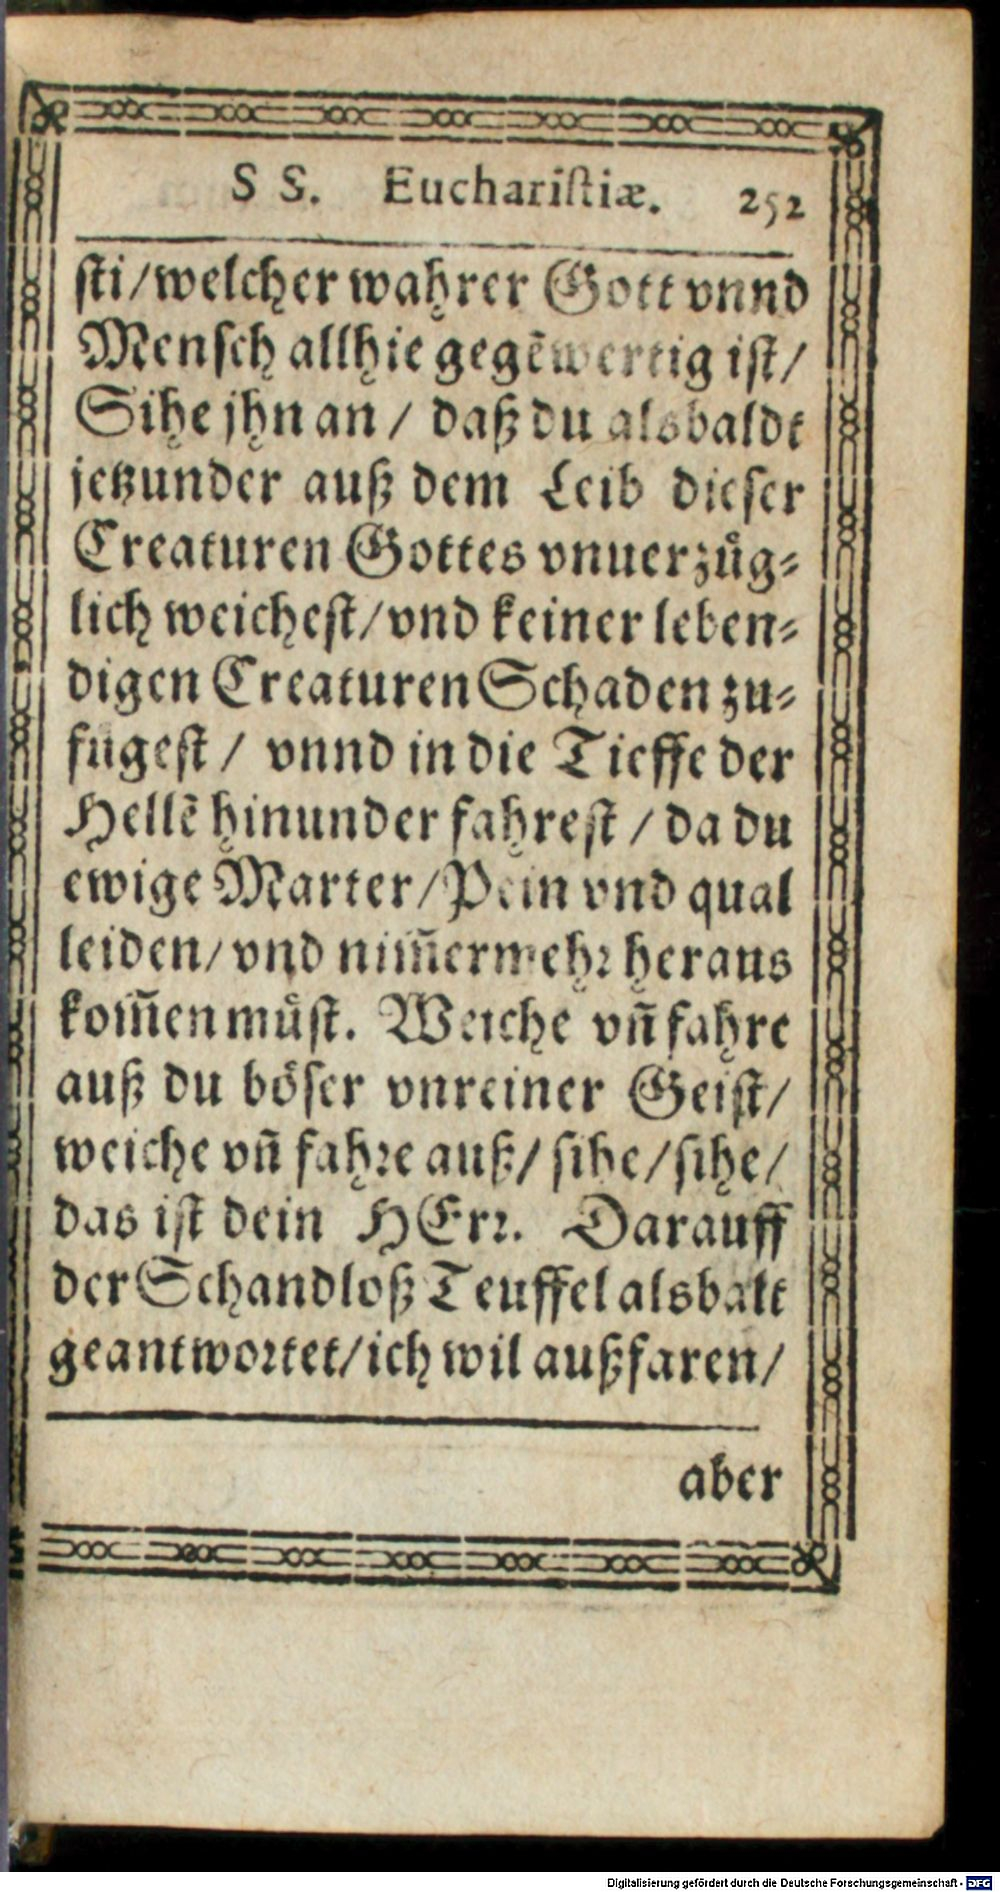 S S. Euchariſtiæ. 252
ſti/welcher wahrer Gott vnnd
Menſch allhie gegẽwertig iſt/
Sihe jhn an / daß du alsbaldt
jetzunder auß dem Leib dieſer
Creaturen Gottes vnuerzuͤg⸗
lich weicheſt/vnd keiner leben⸗
digen Creaturen Schaden zu⸗
fuͤgeſt / vnnd in die Tieffe der
Hellẽ hinunder fahreſt / da du
ewige Marter/Pein vnd qual
leiden/vnd nim̃ermehꝛ heraus
kom̃en muͤſt. Weiche vñ fahre
auß du boͤſer vnreiner Geiſt/
weiche vñ fahꝛe auß/ ſihe/ſihe/
das iſt dein HErꝛ. Darauff
der Schandloß Teuffel alsbalt
geantwoꝛtet/ich wil außfaren/
aber
Digitalisierung gefördert durch die Deutsche Forschungsgemeinschaft - DFG